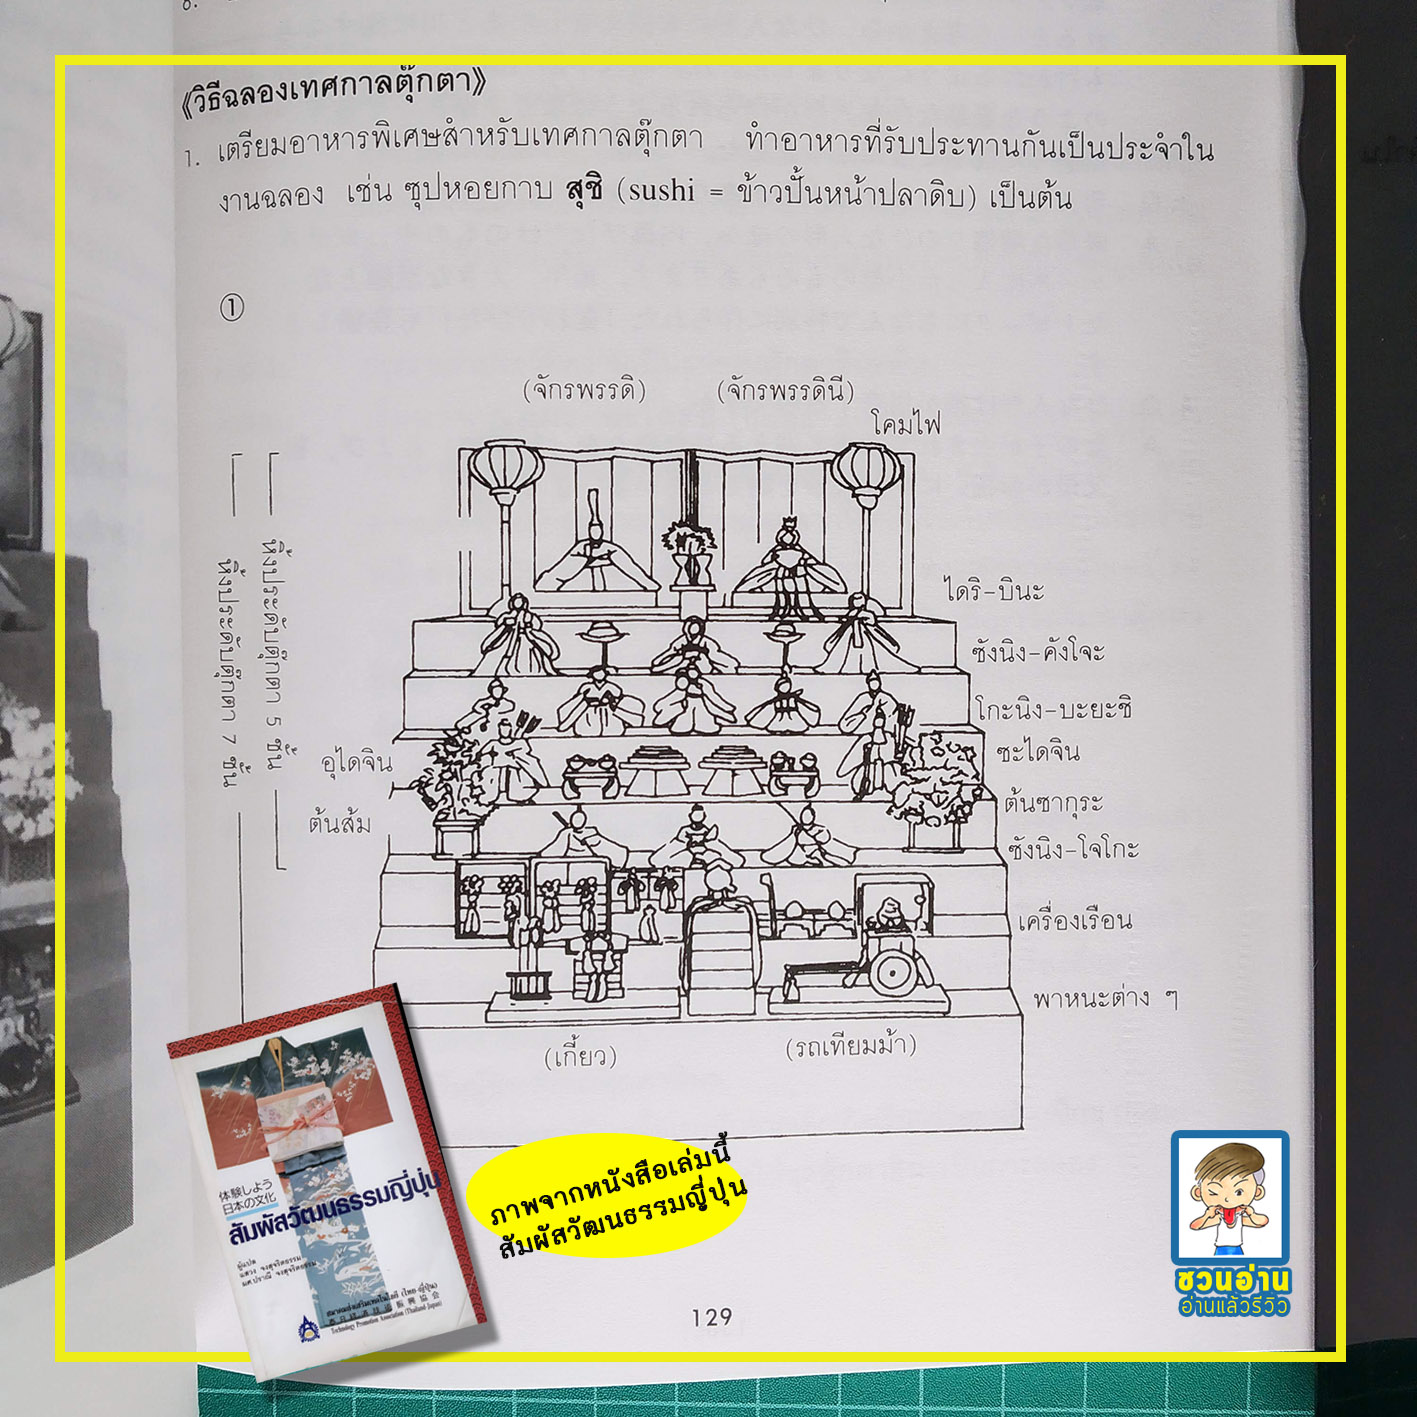 《วิธีฉลองเทศกาลตุ๊กตา》
1. เตรียมอาหารพิเศษสำหรับเทศกาลตุ๊กตา ทำอาหารที่รับประทานกันเป็นประจำใน
งานฉลอง เช่น ซุปหอยกาบ สุชิ (sushi = ข้าวปั้นหน้าปลาดิบ) เป็นต้น
①
(จักรพรรดิ)
(จักรพรรดินี)
โคมไฟ
หิ้งประดับตุ๊กตา 5 ชั้น
หิ้งประดับตุ๊กตา 7 ชั้น
ไดริ-บินะ
ซังนิง-คังโจะ
โกะนิง-บะยะชิ
อุไดจิน
ซะไดจิน
ต้นส้ม
ต้นซากุระ
ซังนิง-โจโกะ
เครื่องเรือน
พาหนะต่าง ๆ
(เกี้ยว)
(รถเทียมม้า)
体験しよう
日本の文化
สัมผัสวัฒนธรรมญี่ปุ่น
ผู้แปล
แสวง จงสุจริตธรรม
ผศ.ปราณี จงสุจริตธรรม
สมาคมส่งเสริมเทคโนโลยี (ไทย-ญี่ปุ่น)
泰日経済技術振興協会
Technology Promotion Association (Thailand-Japan)
ภาพจากหนังสือเล่มนี้
สัมผัสวัฒนธรรมญี่ปุ่น
ชวนอ่าน
อ่านแล้วรีวิว
129